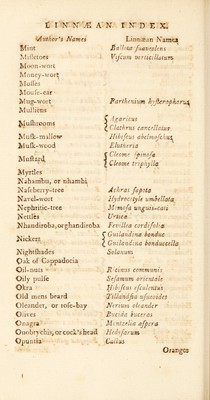 LINNÆAN INDEX.
Author's Names Linnæan Names
Mint Ballota suaveolens
Misletoes Viscum verticillatum
Moon-wort
Money-wort
Mosses
Mouse-ear
Mug-wort Parthenium hysterophorus
Mulliens
Mushrooms { Agaricus
Clathrus cancellatus
Musk-mallow Hibiscus abelmoschus
Musk-wood Elutheria
Mustard { Cleome spinosa
Cleome triphylla
Myrtles
Nahambu, or nhambi
Naseberry-tree Achras sapota
Navel-wort Hydrocotyle umbellata
Nephritic-tree Mimosa unguis-cati
Nettles Urtica
Nhandiroba, or ghandiroba Fevillea cordifolia
Nickers { Guilandina bonduc
Guilandina bonducella
Nightshades Solanum
Oak of Cappadocia
Oil-nuts Ricinus communis
Oily pulse Sesamum orientale
Okra Hibiscus esculentus
Old mens beard Tillandsia usneoides
Oleander, or rose-bay Nerium oleander
Olives Bucida buceras
Onagra Mentzelia aspera
Onobrychis, or cock's head Hedysarum
Opuntia Cactus
Oranges